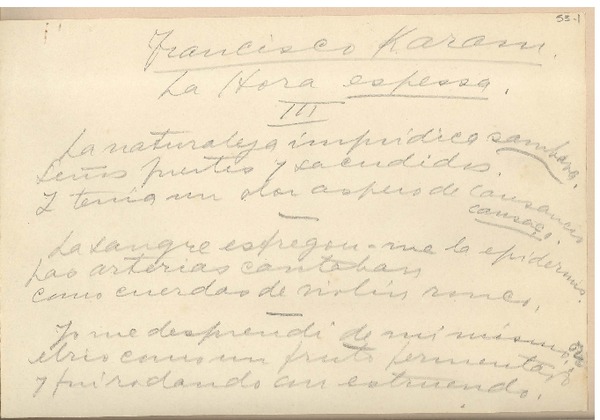 53-1
Francisco Karam.
La Hora espessa.
III
La naturaleza impúdica sambava,
Senos fuertes y sacudidos.
Y tenía un olor aspero de cansancio
cansaço.
La sangre espregou-me la epidermis.
Las arterias cantaban
como cuerdas de violín ronco.
Yo me desprendi de mi mismo,
ebrio como un fruto fermentado
y fui rodando con estruendo.